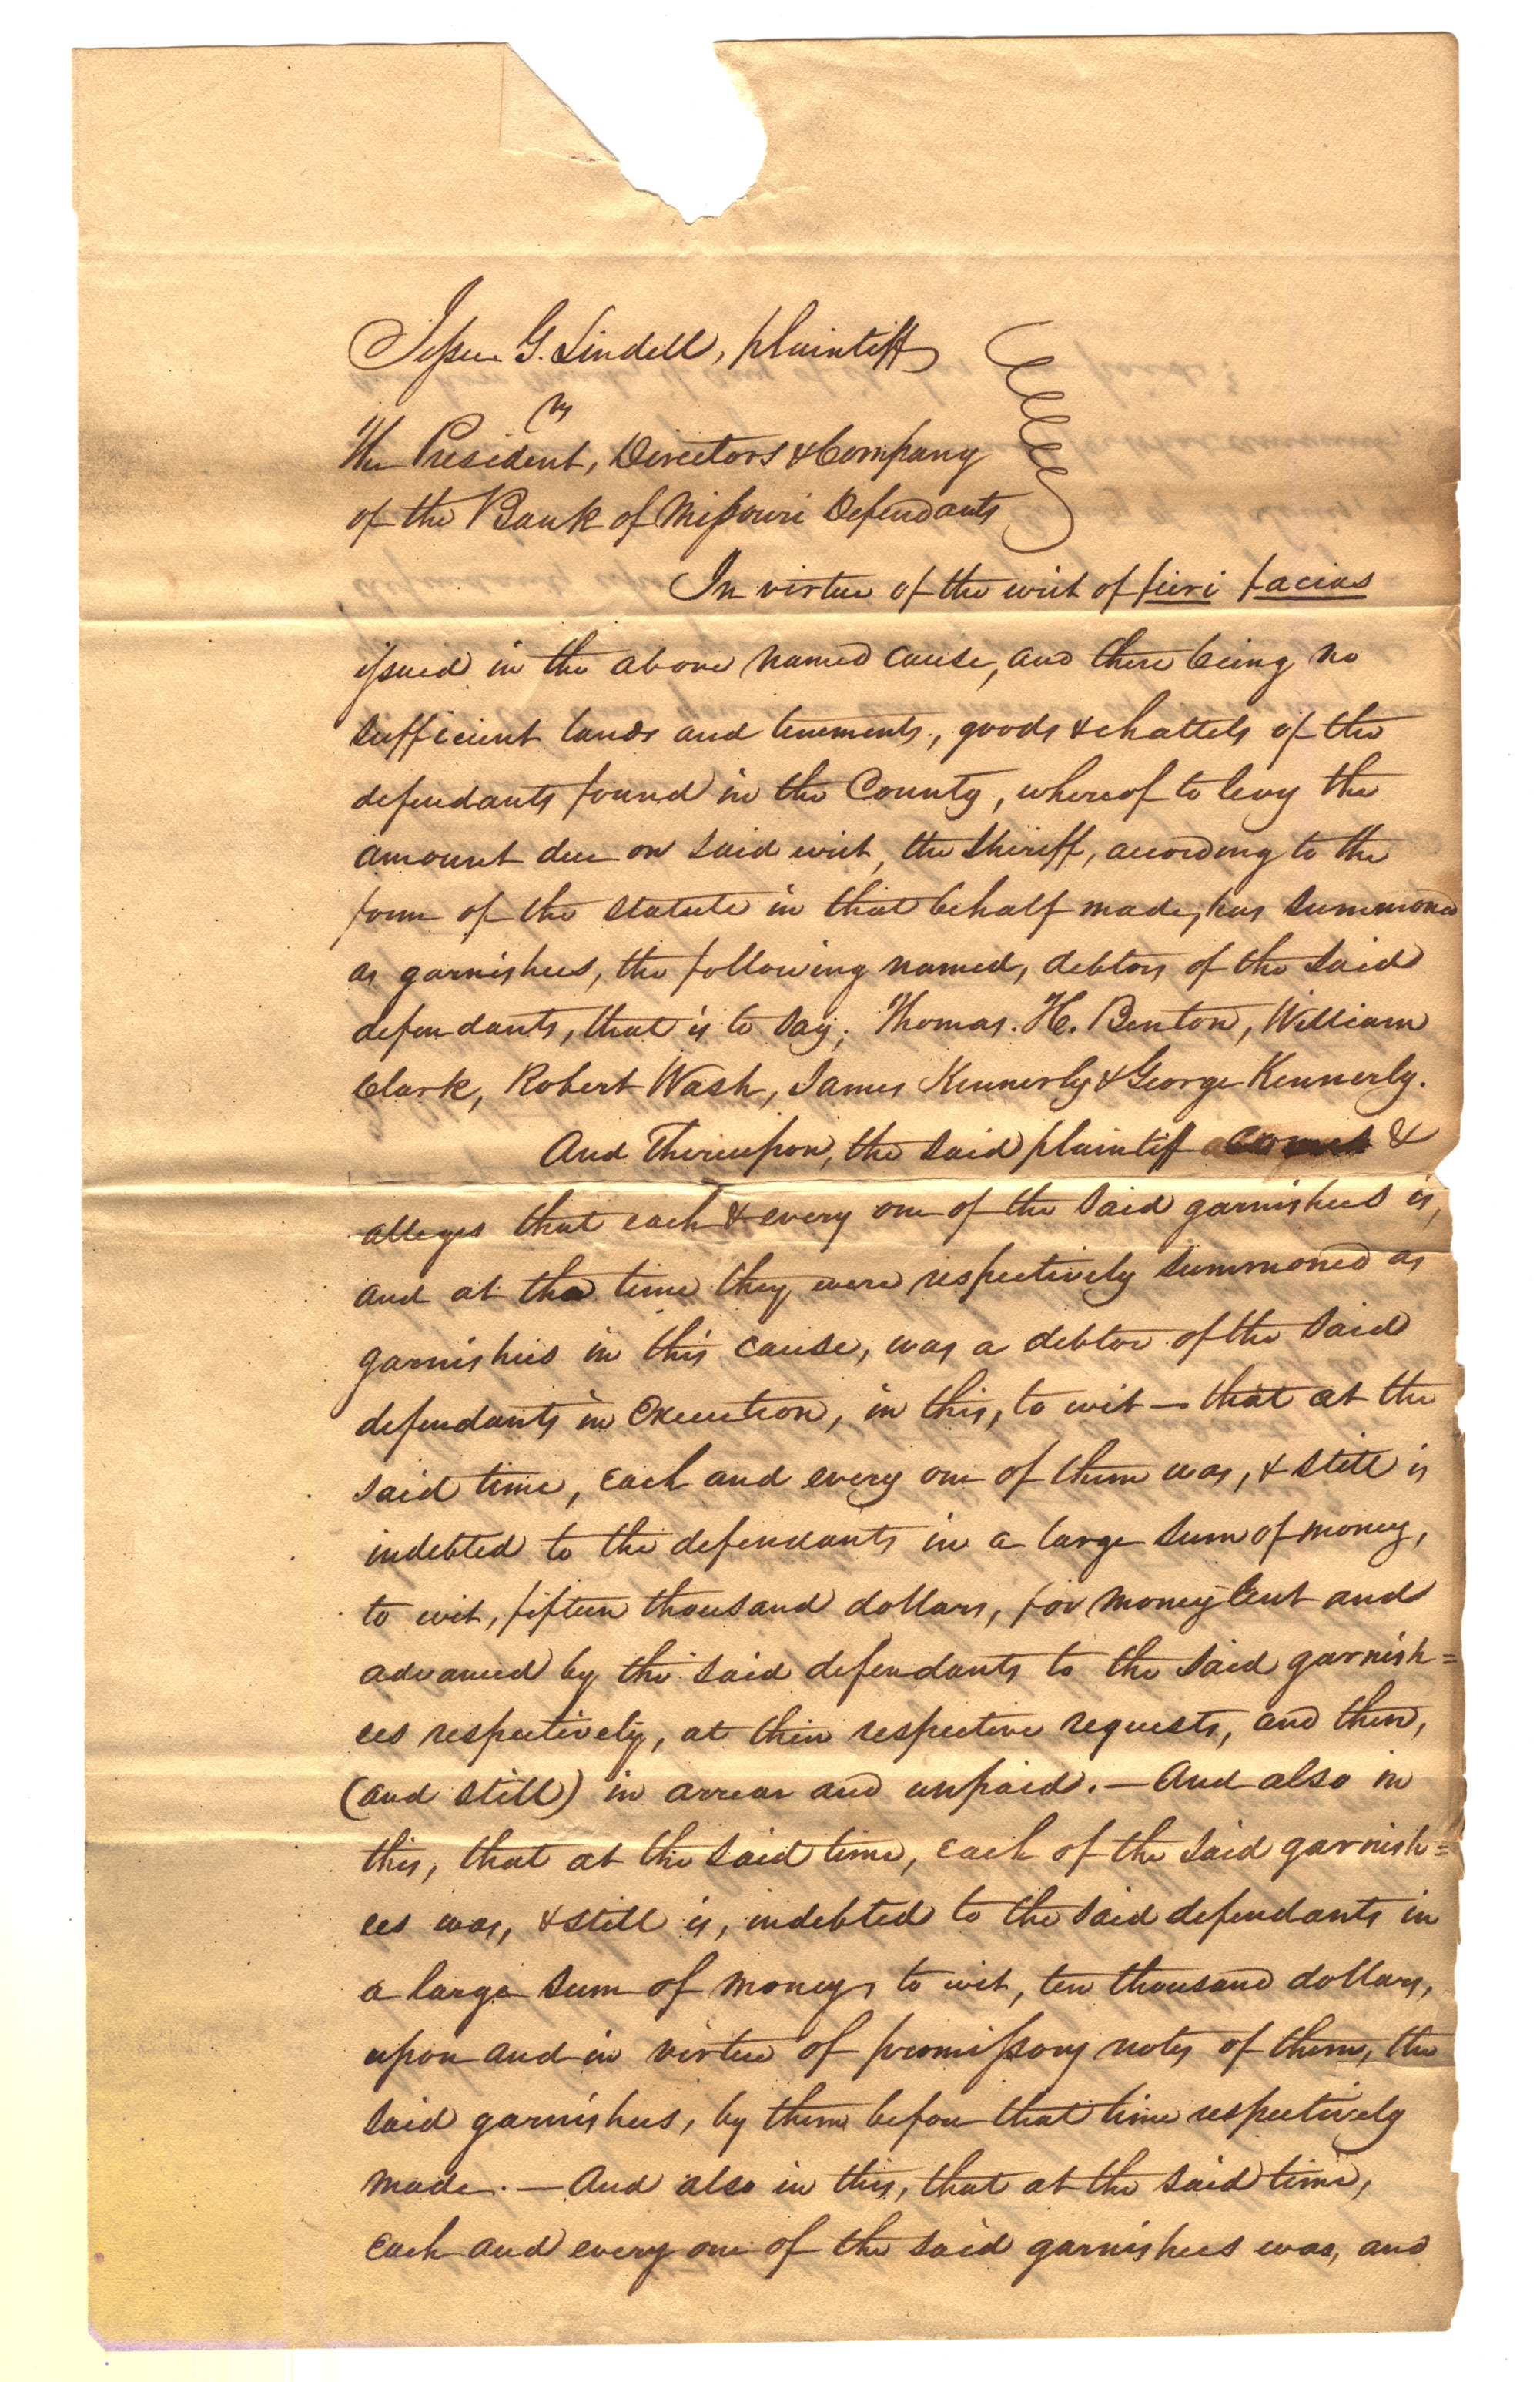 Jesse G. Lindell, plaintiff
vs
The President, Directors & Company
of the Bank of Missouri Defendants
In virtue of the writ of fieri facias
issued in the above named cause, and there being no
sufficient lands and tenements, goods & chattels of the
defendants found in the County, whereof to levy the
amount due on said writ, the Sheriff, according to the
form of the statute in that behalf made, has summoned
as garnishees, the following named, debtors of the said
defendants, that is to say; Thomas. H. Benton, William
Clark, Robert Wash, James Kennerly & George Kennerly.
And Thereupon, the said plaintiff &
alleges that each & every one of the said garnishees is,
and at the time they were respectively summoned as
garnishees in this cause, was a debtor of the said
defendants in Execution, in this, to wit — that at the
said time, each and every one of them was, & still is
indebted to the defendants in a large sum of money,
to wit, fifteen thousand dollars, for money lent and
advanced by the said defendants to the said garnish=
ees respectively, at their respective requests, and then,
(and still) in arrear and unpaid. — And also in
this, that at the said time, each of the said garnish=
ees was, & still is, indebted to the said defendants in
a large sum of money, to wit, ten thousand dollars,
upon and in virtue of promissory notes of them, the
said garnishees, by them before that time respectively
made. — And also in this, that at the said time,
each and every one of the said garnishees was, and